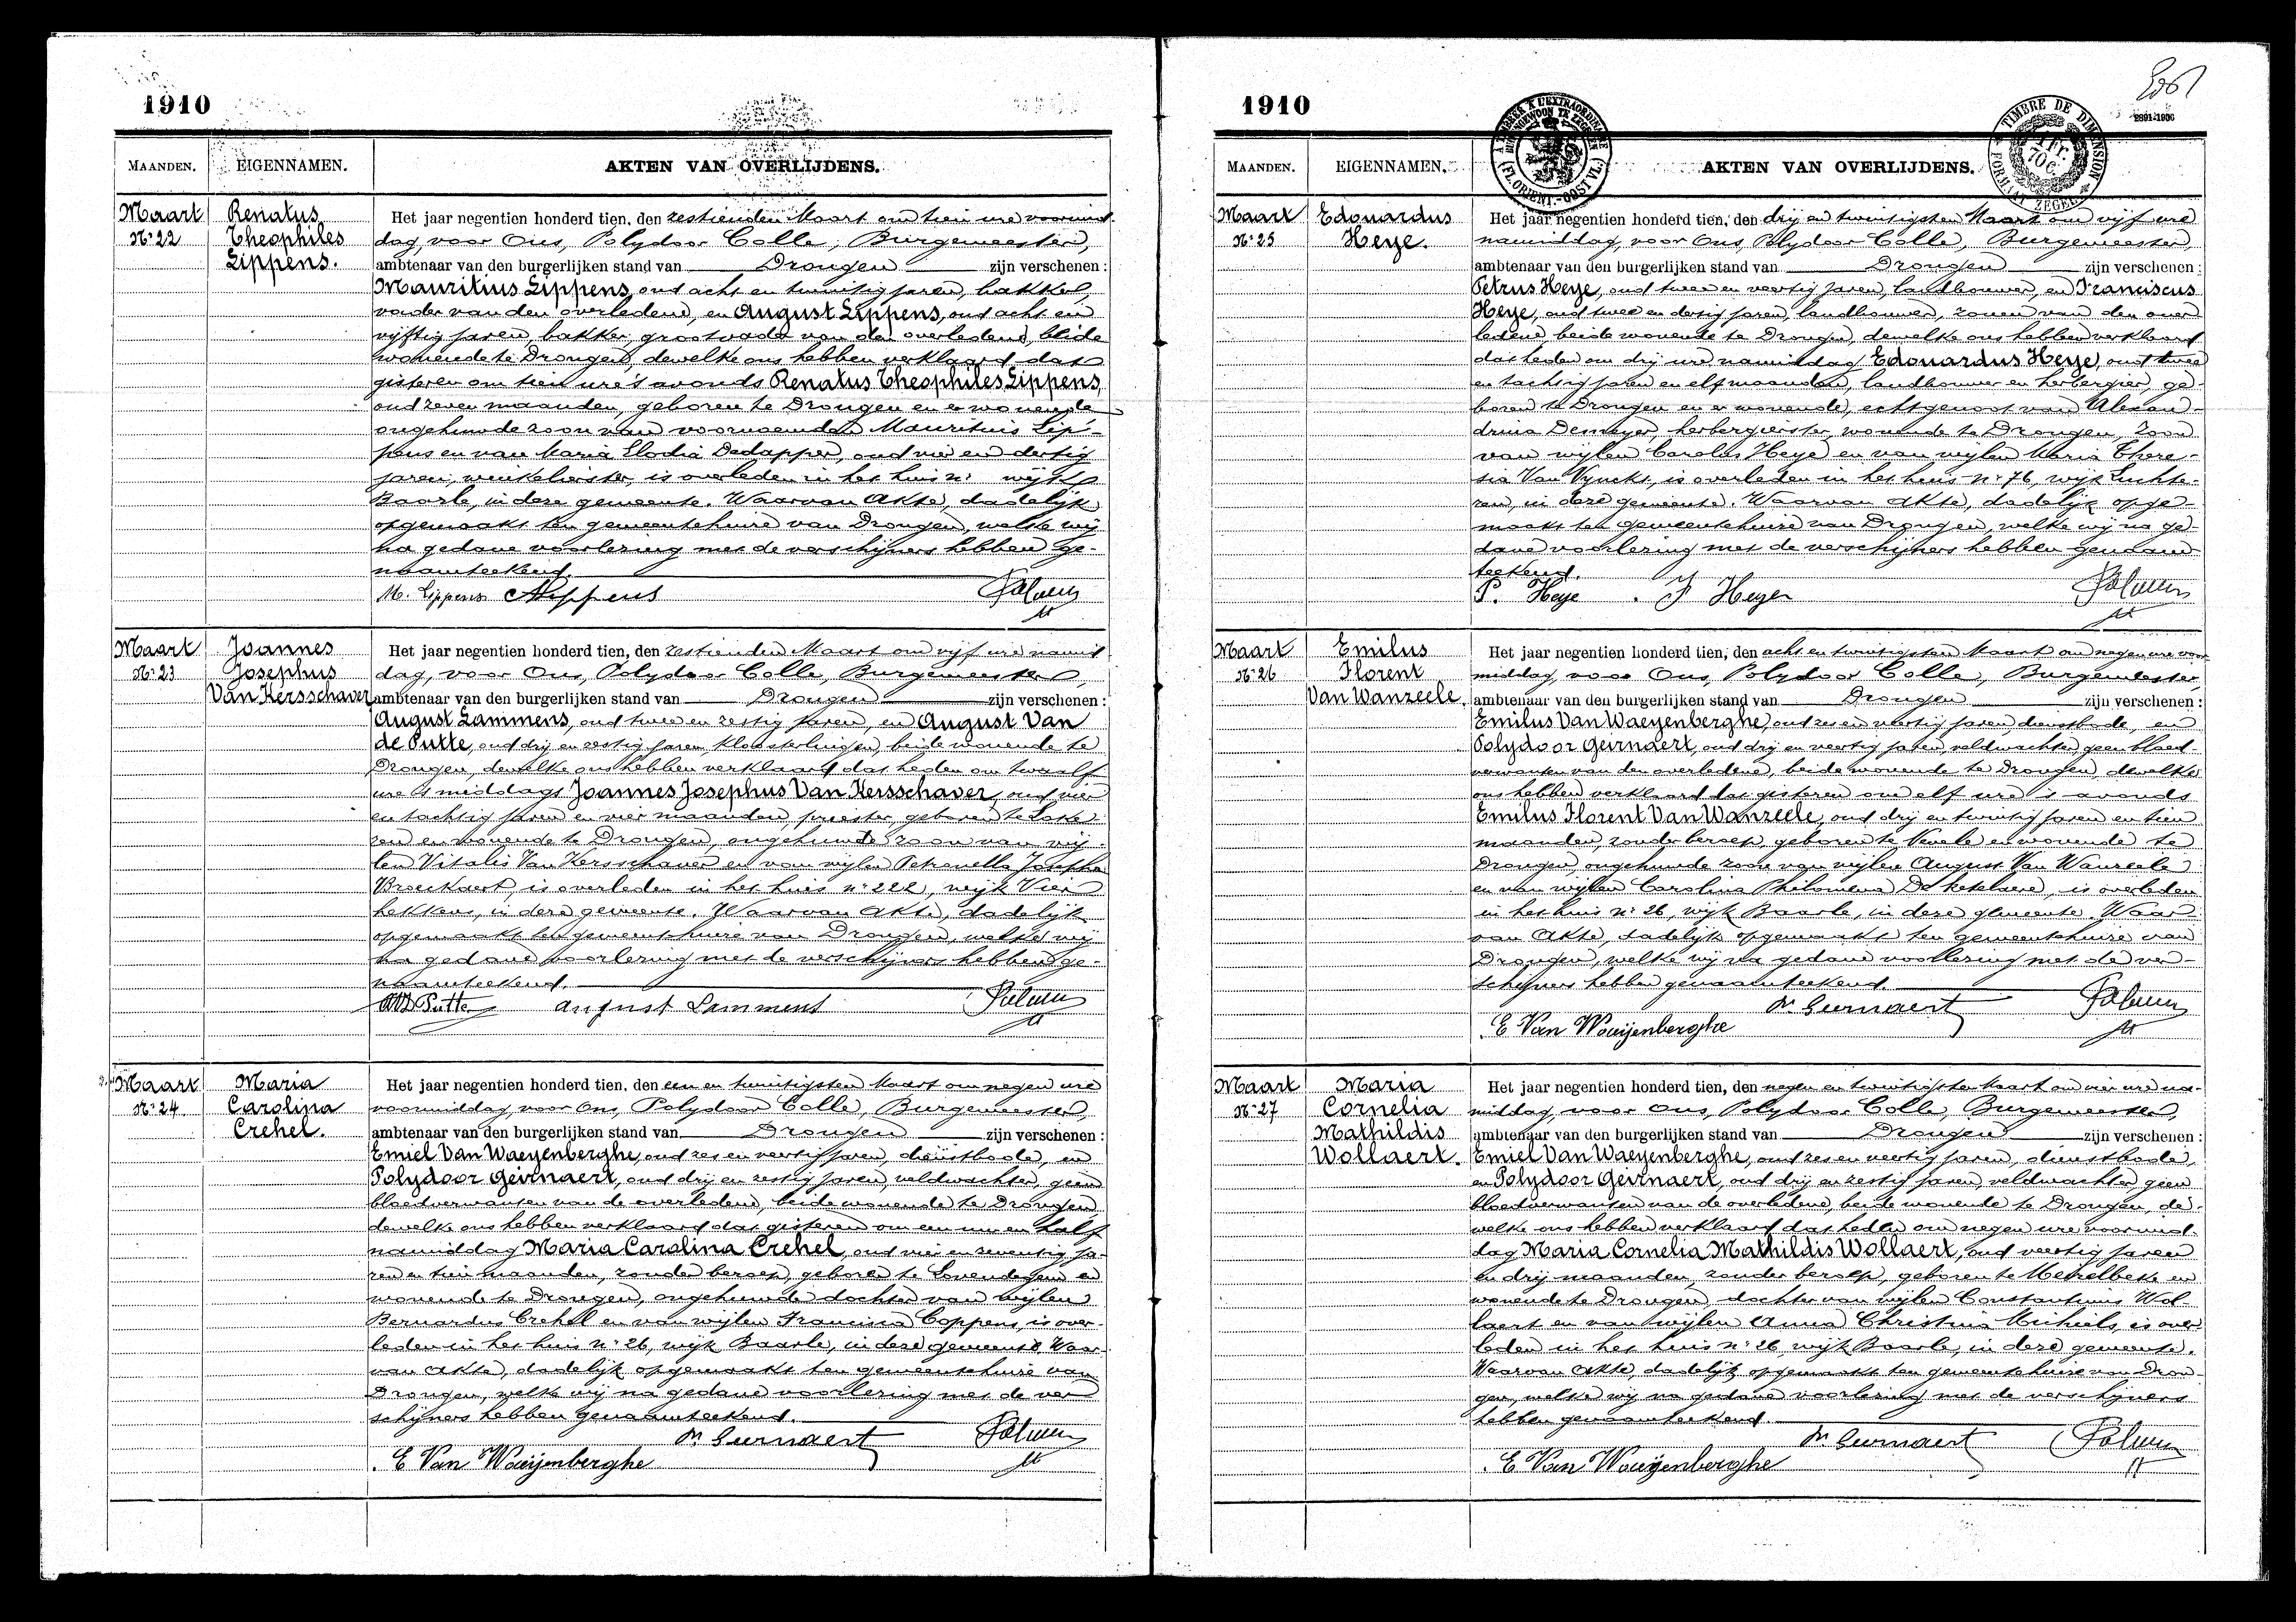 1910
MAANDEN.
EIGENNAMEN.
AKTEN VAN OVERLIJDENS.
Maart
N:22
Renatus
Theophiles
Lippens.
Het jaar negentien honderd tien, den zestienden Maart om tien ure voormid
dag, voor Ons, Polydoor Colle, Burgemeester,
ambtenaar van den burgerlijken stand van Drongen zijn verschenen :
Mauritius Lippens, oud acht en twintig jaren, bakker,
vader van den overledene, en August Lippens, oud acht en
vijftig jaren, bakker, grootvader van den overledene, beide
wonende te Drongen, dewelke ons hebben verklaard dat
gisteren om tien ure 's avonds Renatus Theophiles Lippens,
oud zeven maanden, geboren te Drongen en er wonende
ongehuwde zoon van voornoemden Mauritius Lip-
pens en van Maria Elodia Dedapper, oud vier en dertig
jaren, winkelierster, is overleden in het huis n: wijk
Baarle, in deze gemeente. Waarvan Akte, dadelijk
opgemaakt ten gemeentehuize van Drongen, welke wij
na gedane voorlezing met de verschijners hebben ge-
naamteekend.
M. Lippens A Lippens
Maart
N:23
Joannes
Josephus
Van Kersschaver
Het jaar negentien honderd tien, den zestienden Maart om vijf ure namid
dag, voor Ons, Polydoor Colle, Burgemeester,
ambtenaar van den burgerlijken stand van Drongen zijn verschenen :
August Lammens, oud twee en zestig jaren, en August Van
de Putte, oud drij en zestig jaren kloosterlingen, beide wonende te
Drongen, dewelke ons hebben verklaard dat heden om twaalf
ure 's middags Joannes Josephus Van Kersschaver, oud vier
en tachtig jaren en vier maanden, priester, geboren te Loke-
ren en wonende te Drongen, ongehuwde zoon van wij-
len Vitalis Van Kersschaver en van wijlen Petronella Josepha
Broeckaert, is overleden in het huis n: 222, wijk Vier
hekkens, in deze gemeente. Waarvan Akte, dadelijk
opgemaakt ten gemeentehuize van Drongen, welke wij
na gedane voorlezing met de verschijners hebben ge-
naamteekend.
Putte August Lammens
Maart
N:24
Maria
Carolina
Crehel.
Het jaar negentien honderd tien, den een en twintigsten Maart om negen ure
voormiddag, voor Ons, Polydoor Colle, Burgemeester,
ambtenaar van den burgerlijken stand van Drongen zijn verschenen :
Emiel Van Waeyenberghe, oud zes en veertig jaren, dienstbode, en
Polydoor Geirnaert, oud drij en zestig jaren, veldwachter, geen
bloedverwanten van de overledene, beide wonende te Drongen,
dewelke ons hebben verklaard dat gisteren om een ure en half
namiddag Maria Carolina Crehel, oud vier en zeventig ja-
ren en tien maanden, zonder beroep, geboren te Lovendegem en
wonende te Drongen, ongehuwde dochter van wijlen
Bernardus Crehel en van wijlen Francisca Coppens, is over-
leden in het huis n: 26, wijk Baarle, in deze gemeente. Waar-
van Akte, dadelijk opgemaakt ten gemeentehuize van
Drongen, welke wij na gedane voorlezing met de ver
schijners hebben genaamteekend.
Geirnaert
E Van Waeijenberghe
1910
MAANDEN.
EIGENNAMEN.
AKTEN VAN OVERLIJDENS.
TIMBRE DE DIMENSION
Maart
N:25
Edouardus
Heye.
Het jaar negentien honderd tien, den drij en twintigsten Maart om vijf ure
namiddag, voor Ons, Polydoor Colle, Burgemeester,
ambtenaar van den burgerlijken stand van Drongen zijn verschenen :
Petrus Heye, oud twee en veertig jaren, landbouwer, en Franciscus
Heye, oud twee en dertig jaren, landbouwer, zonen van den over
ledene, beide wonende te Drongen, dewelke ons hebben verklaard
dat heden om drij ure namiddag Edouardus Heye, oud twee
en tachtig jaren en elf maanden, landbouwer en herbergier, ge-
boren te Drongen en er wonende, echtgenoot van Alexan-
drina Demeyer, herbergierster, wonende te Drongen, zoon
van wijlen Carolus Heye en van wijlen Maria There-
sia Van Vynckt, is overleden in het huis n: 76, wijk Luchte-
ren, in deze gemeente. Waarvan Akte, dadelijk opge-
maakt ten gemeentehuize van Drongen, welke wij na ge-
dane voorlezing met de verschijners hebben genaam-
teekend.
P. Heye . F Heye
Maart
N:26
Emilus
Florent
Van Wanzeele.
Het jaar negentien honderd tien, den acht en twintigsten Maart om negen ure voor
middag, voor Ons, Polydoor Colle, Burgemeester,
ambtenaar van den burgerlijken stand van Drongen zijn verschenen :
Emilus Van Waeyenberghe, oud zes en veertig jaren, dienstbode, en
Polydoor Geirnaert, oud drij en veertig jaren, veldwachter, geen bloed-
verwanten van den overledene, beide wonende te Drongen, dewelke
ons hebben verklaard dat gisteren om elf ure 's avonds
Emilus Florent Van Wanzeele, oud drij en twintig jaren en tien
maanden, zonder beroep, geboren te Nevele en wonende te
Drongen, ongehuwde zoon van wijlen August Van Wanzeele
en van wijlen Carolina Philomena De ketelaere, is overleden
in het huis n: 26, wijk Baarle, in deze gemeente. Waar-
van Akte, dadelijk opgemaakt ten gemeentehuize van
Drongen, welke wij na gedane voorlezing met de ver-
schijners hebben genaamteekend.
Geirnaert
E Van Waeijenberghe
Maart
N:27
Maria
Cornelia
Mathildis
Wollaert.
Het jaar negentien honderd tien, den negen en twintigsten Maart om vier ure na-
middag, voor Ons, Polydoor Colle, Burgemeester,
ambtenaar van den burgerlijken stand van Drongen zijn verschenen :
Emiel Van Waeyenberghe, oud zes en veertig jaren, dienstbode,
en Polydoor Geirnaert, oud drij en zestig jaren veldwachter geen
bloedverwanten van de overledene, beide wonende te Drongen, de-
welke ons hebben verklaard dat heden om negen ure voormid-
dag Maria Cornelia Mathildis Wollaert, oud veertig jaren
en drij maanden, zonder beroep, geboren te Melselbeke en
wonende te Drongen, dochter van wijlen Constantinus Wol-
laert en van wijlen Anna Christina Michiels, is over
leden in het huis n: 26, wijk Baarle, in deze gemeente.
Waarvan Akte, dadelijk opgemaakt ten gemeentehuize van Dron-
gen, welke wij na gedane voorlezing met de verschijners
hebben genaamteekend.
Geirnaert
E Van Waeijenberghe